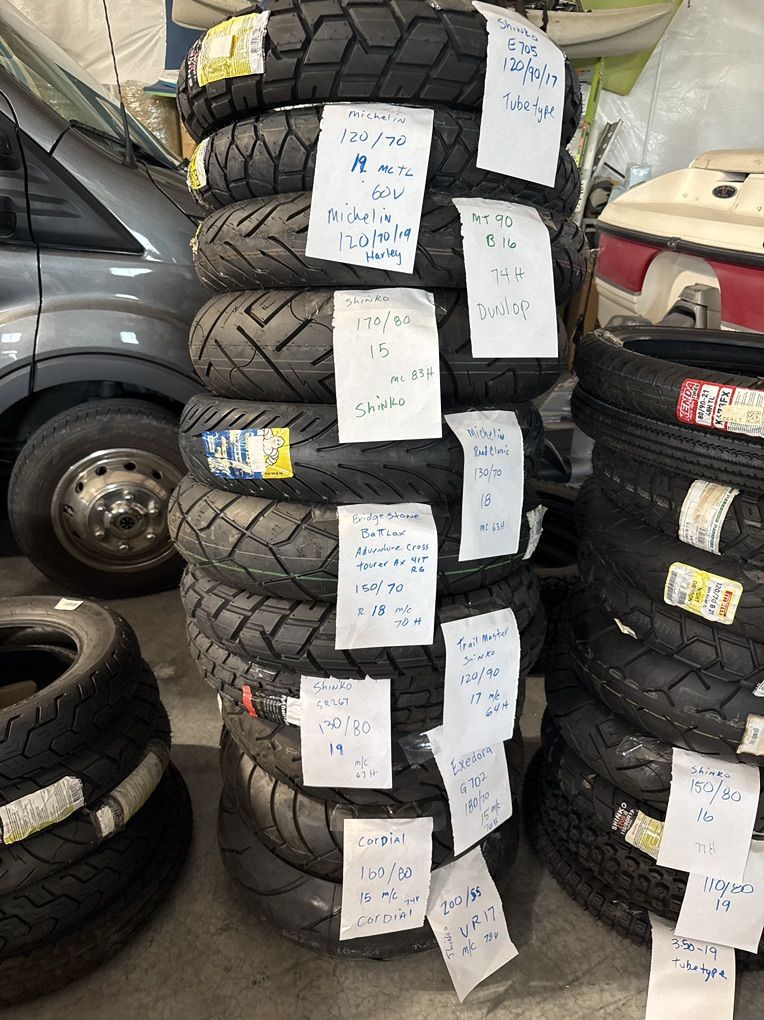 Shinko
E705
120/90/17
Tubetype
Michelin
120/70
19 MCTL
60V
Michelin
120/70/19
Harley
MT 90
B16
74H
Dunlop
Shinko
170/80
15
MC 83H
Shinko
Michelin
130/70
18
MC 63H
BridgeStone
Battlax
Adventure Cross
tourer AX 41T
RG
150/70
R 18 m/c
70 H
Trail Master
Shinko
120/90
17 m/c
64H
Shinko
SR267
130/80
19
m/c
67H
Exedora
G702
180/70
15 m/c
76H
Cordial
160/80
15 m/c 74P
Cordial
200/55
VR17
m/c 78V
Shinko
KENDA
80/90-21
48H TL
K673FX
120/70 B 21
SHINKO
Shinko
150/80
16
77H
110/80
19
3.50-19
Tubetype